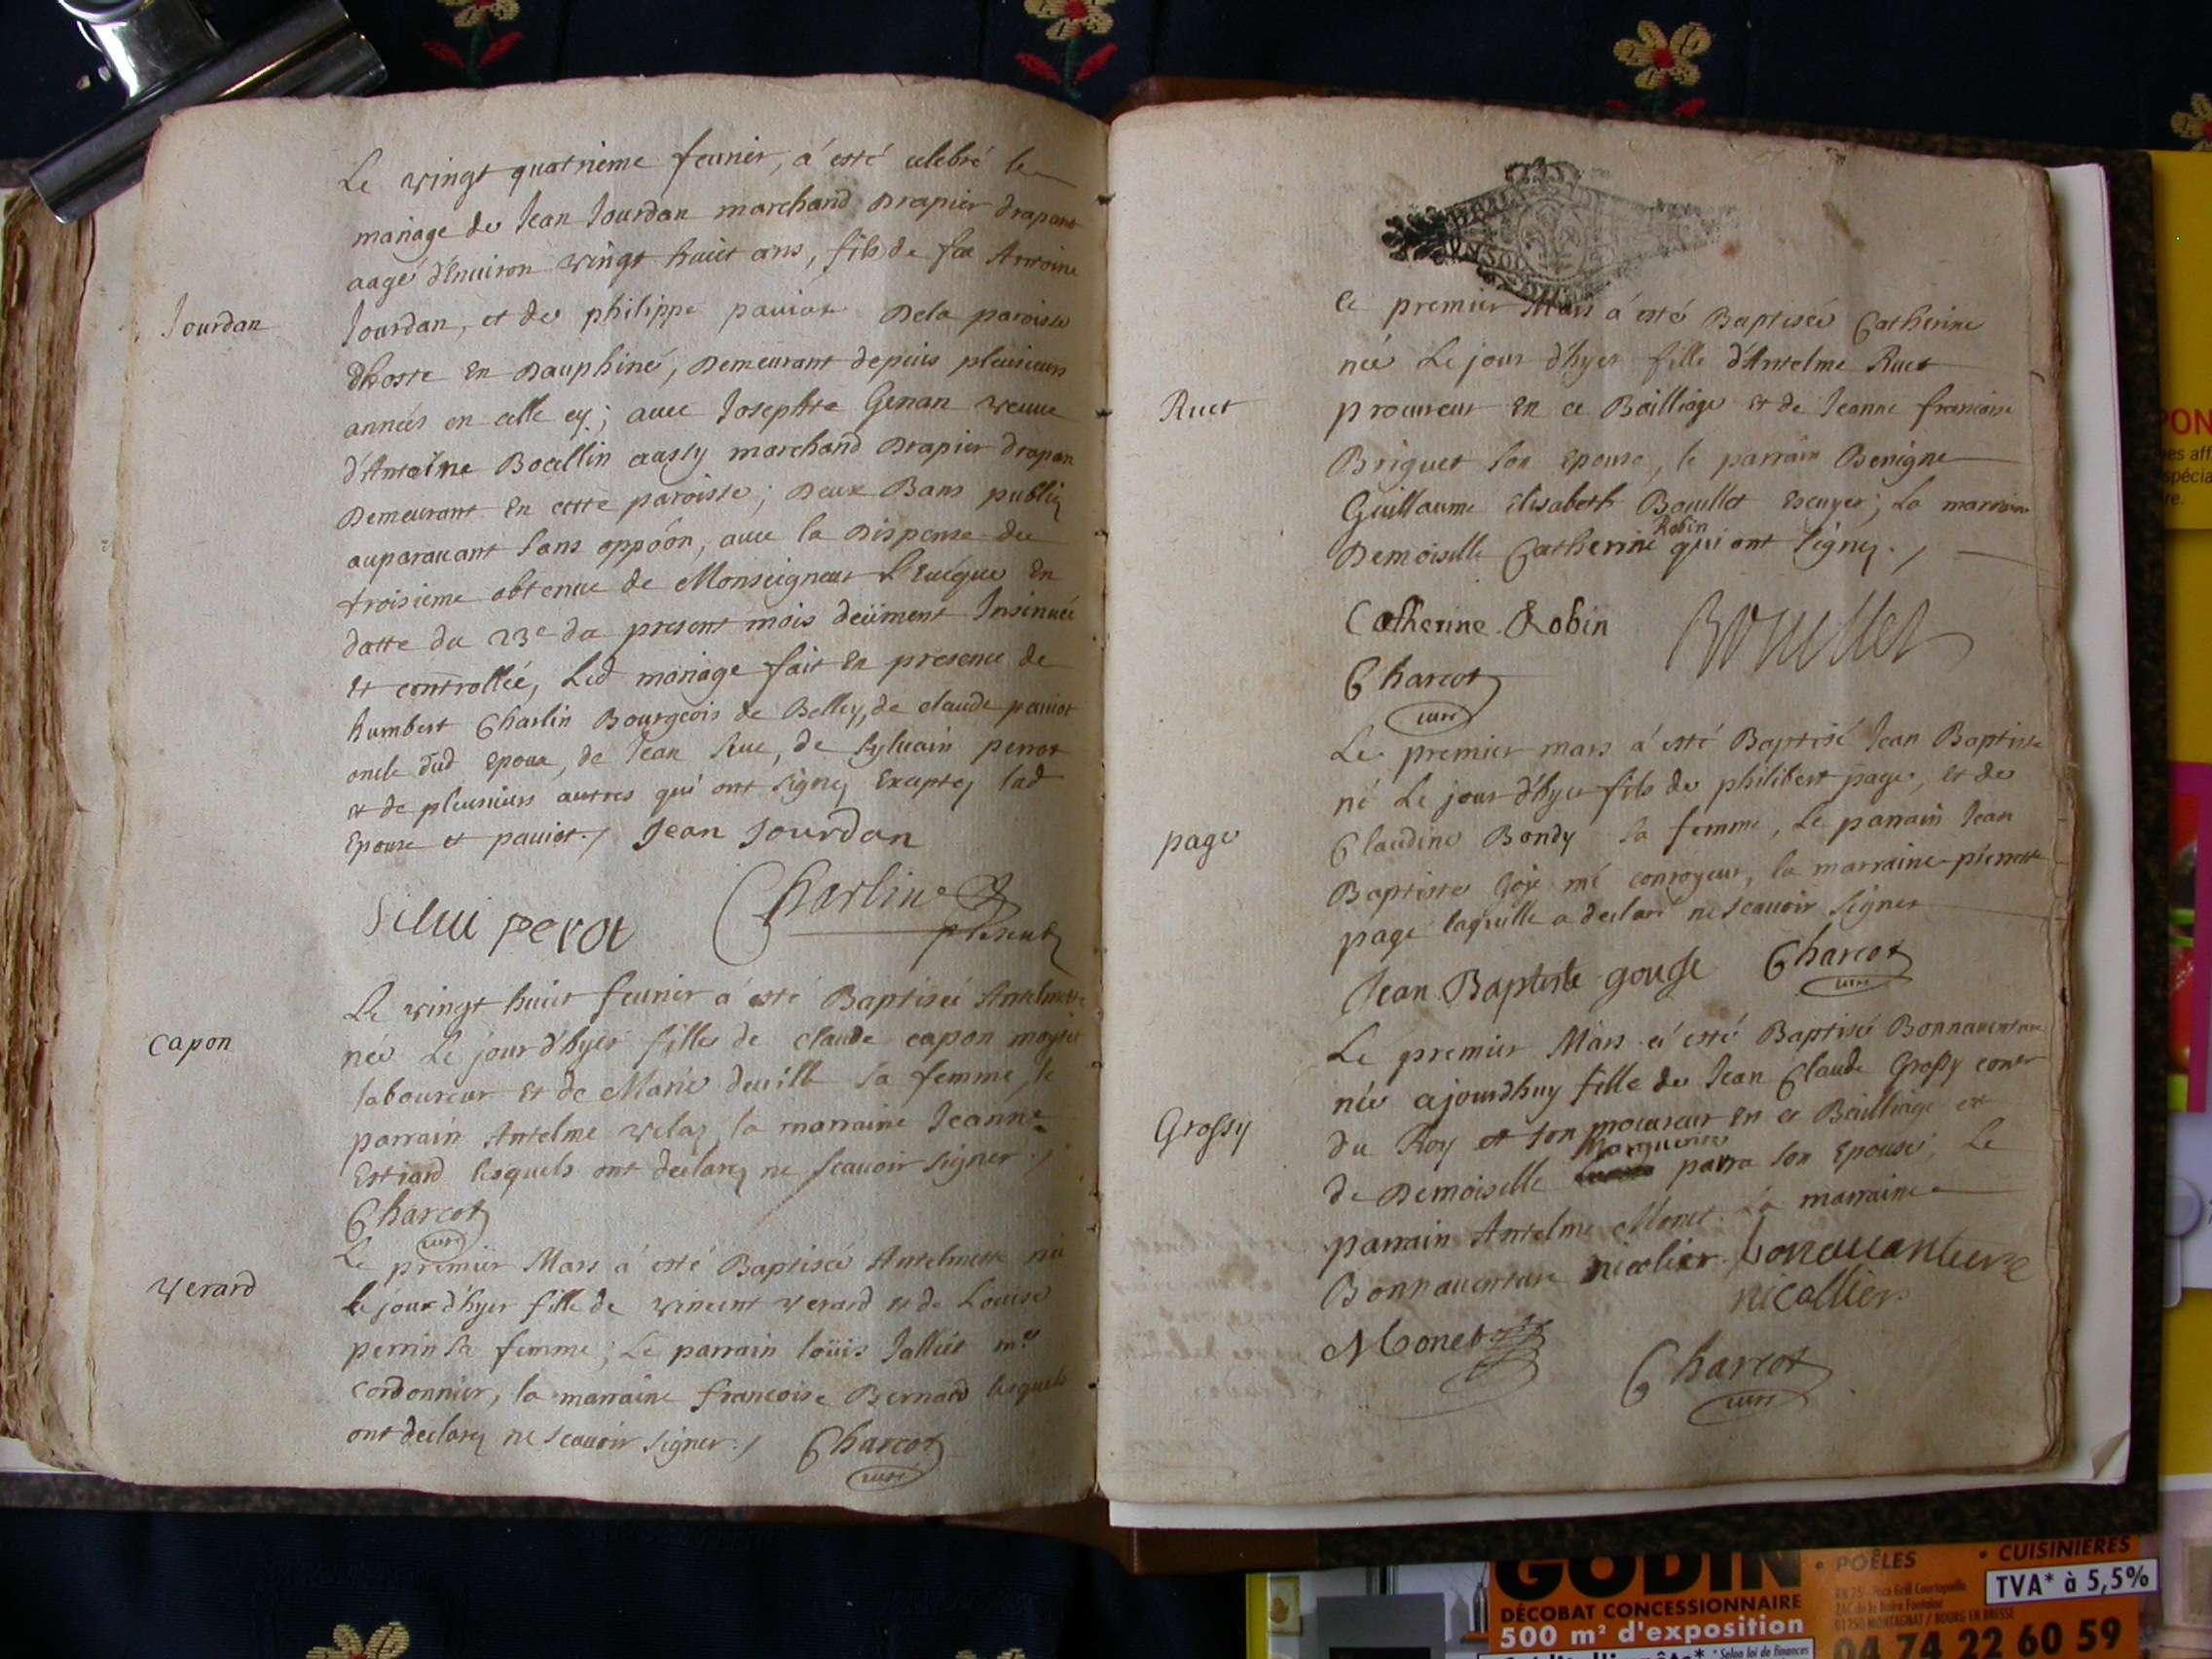 Le vingt quatrieme feurier, á esté celebré le
mariage de Jean Jourdan marchand Drapier drapant
aagé d'Enuiron vingt huict ans, fils de feu Antoine
Jourdan
Jourdan, et de philippe pauiot Dela paroisse
dhoste En Dauphiné, Demeurant depuis pleusieurs
années en celle cy; auec Josephte Genan veuue
d'Antoine Boullin aussy marchand Drapier drapan
Demeurant En cette paroisse; Deux Bans publiez
auparauant sans oppôon, auec la Dispense du
troisieme obtenue de Monseigneur l'Euéque En
datte du 23e du present mois deüment Insinuée
et controllée, Led mariage fait En presence de
humbert Charlin Bourgeois de Belley, de claude pauiot
oncle dud Epoux, de Jean Rue, de Syluain perrot
et de pleusieurs autres qui ont signez Exceptez lad
Epouse et pauiot./ Jean Jourdan
Silui perot Charlin
present
Le vingt huict feurier á esté Baptisée Antelmette
Capon
née Le jour d'hyer fille de claude capon
laboureur et de Marie deuille sa femme, le
parrain Antelme velaz, la marraine Jeanne
Estiard lesquels ont declarez ne scauoir signer./
Charcot
curé
Le premier Mars á esté Baptisée Antelmette née
Verard
le jour d'hyer fille de vincent verard et de Louise
perrin sa femme; Le parrain loüis Jalliet me
cordonnier, la marraine francoise Bernard lesquels
ont declarez ne scauoir signer./ Charcot
curé
Le premier Mars á esté Baptisée Catherine
née Le jour d'hyer fille d'Antelme Ruet
Ruet
procureur En ce Bailliage et de Jeanne francoise
Briquet son Epouse, le parrain Benigne
Guillaume Elisabeth Bouillet Escuyer; La marraine
Demoiselle Catherine Robin qui ont signez./
Catherine Robin Bouillet
Charcot
curé
Le premier mars á esté Baptisé Jean Baptiste
né Le jour d'hyer fils de philibert page, et de
page
Claudine Bondy sa femme, Le parrain Jean
Baptiste Goje me conroyeur, la marraine pierrette
page laquelle a declaré ne scauoir signer
Jean Baptiste gouje Charcot
curé
Le premier Mars á esté Baptisée Bonnauenture
née ajourdhuy fille de Jean Claude Grossy coner
Grossy
du Roy et son procureur En ce Bailliage et
de Demoiselle Marguerite parra son Epouse; Le
parrain Antelme Monet La marraine
Bonnauenture nicolier bonauanture
nicollier
Monet
Charcot
curé
GODIN
DÉCOBAT CONCESSIONNAIRE
500 m² d'exposition
• POÊLES • CUISINIÈRES
TVA* à 5,5%
01250 MONTAGNAT / BOURG EN BRESSE
04 74 22 60 59
* Selon loi de finances